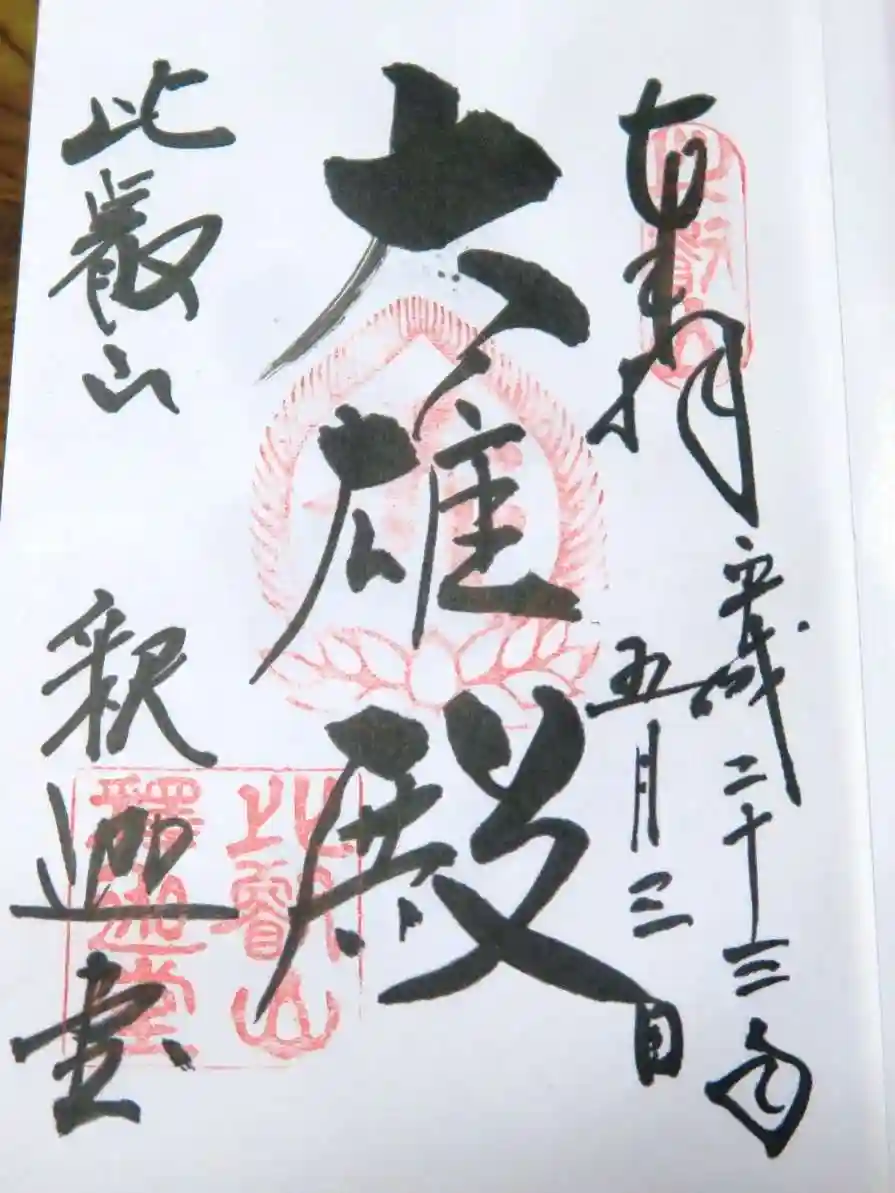 奉拝
平成二十三年
五月三日
大雄殿
比叡山 釈迦堂
比叡山
釋迦堂